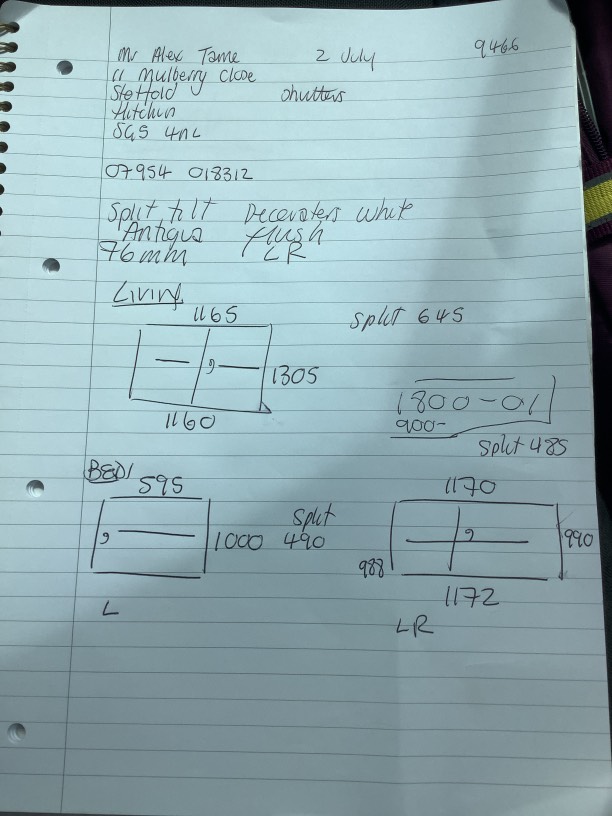 Mr Alex Tame 2 July 9466
11 Mulberry Close
Stotfold Shutters
Hitchin
SG5 4NL
07954 018312
Split tilt Decoraters White
Antigua flush
76mm LR
Living
1165 Split 645
1305
1160
1800-01
900-
Split 485
BED1
595 1170
Split
1000 490 990
988
1172
L LR